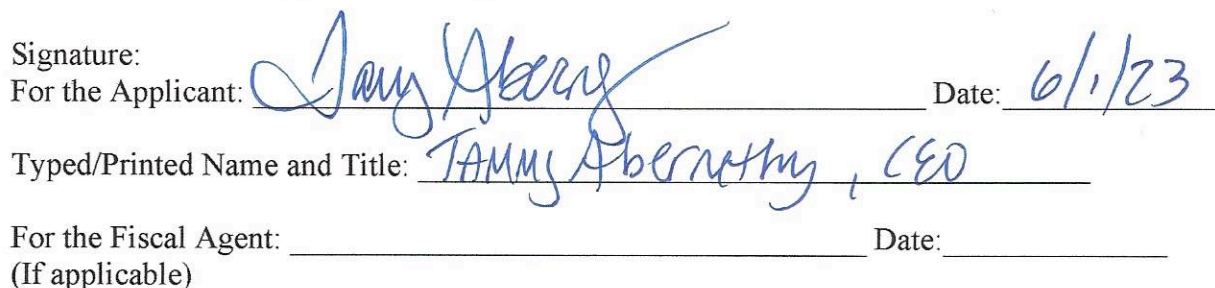 Signature:
For the Applicant: Date: 6/1/23
Typed/Printed Name and Title: TAMMy Abernethy, CEO
For the Fiscal Agent: Date:
(If applicable)